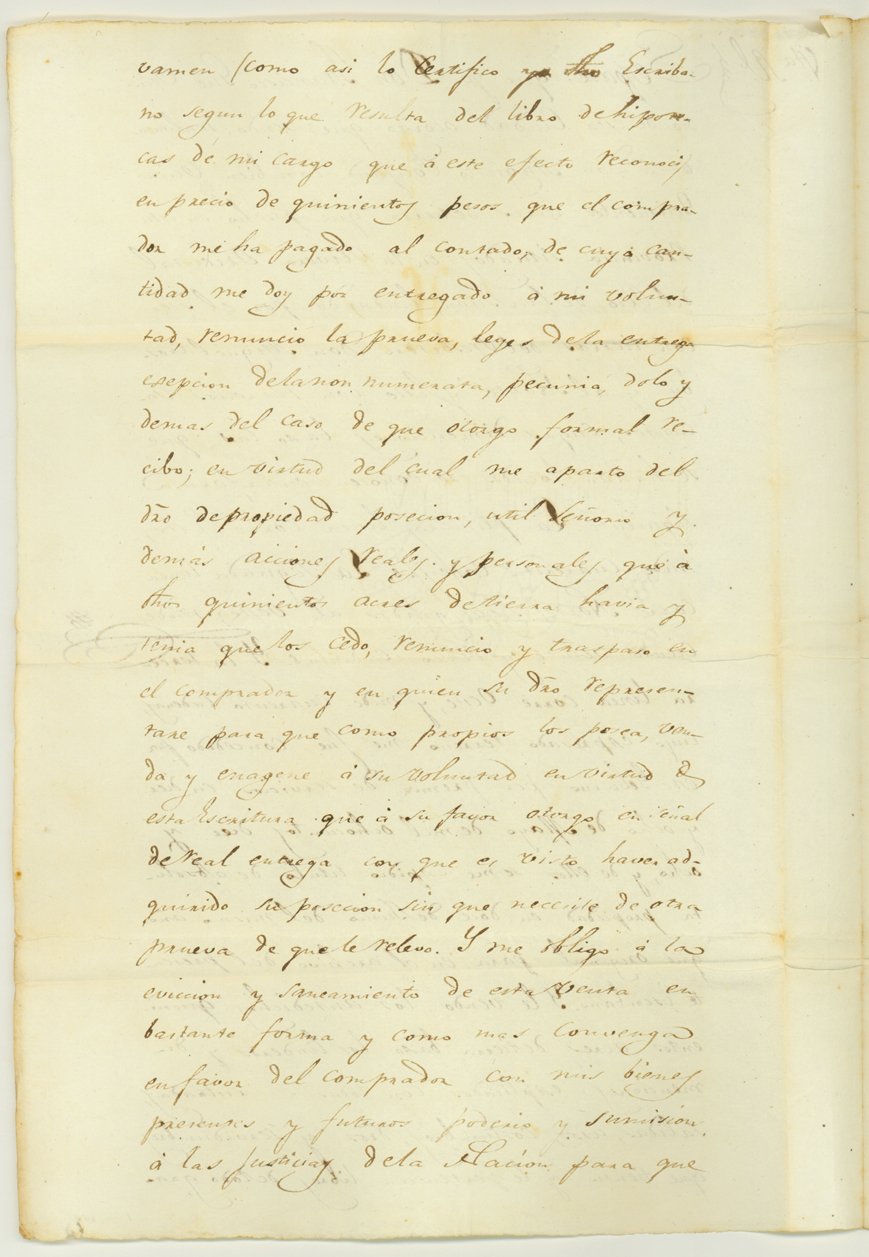 vamen (como asi lo Certifico yo dho Escriba-
no segun lo que resulta del libro de hipote-
cas de mi cargo que á este efecto reconoci,
en precio de quinientos pesos que el compra-
dor me ha pagado al contado, de cuya can-
tidad me doy por entregado á mi volun-
tad, renuncio la prueva, leyes dela entrega
esepcion dela non numerata, pecunia, dolo y
demas del caso de que otorgo formal re-
cibo; en virtud del cual me aparto del
dro de propiedad posecion, util Señorio y
demás acciones reales y personales que à
dhos quinientos acres de tierra havia y
tenia que los cedo, renuncio y traspaso en
el comprador y en quien su dro represen-
tare para que como propios los posea, ven-
da y enagene á su voluntad en virtud de
esta Escritura que á su favor otorgo en señal
de real entrega con que es visto haver ad-
quirido su posecion sin que necesite de otra
prueva de que le relevo. Y me obligo á la
eviccion y saneamiento de esta venta en
bastante forma y como mas convenga
en favor del comprador con mis bienes
presentes y futuros poderio y sumision
á las justicias dela Nacion para que